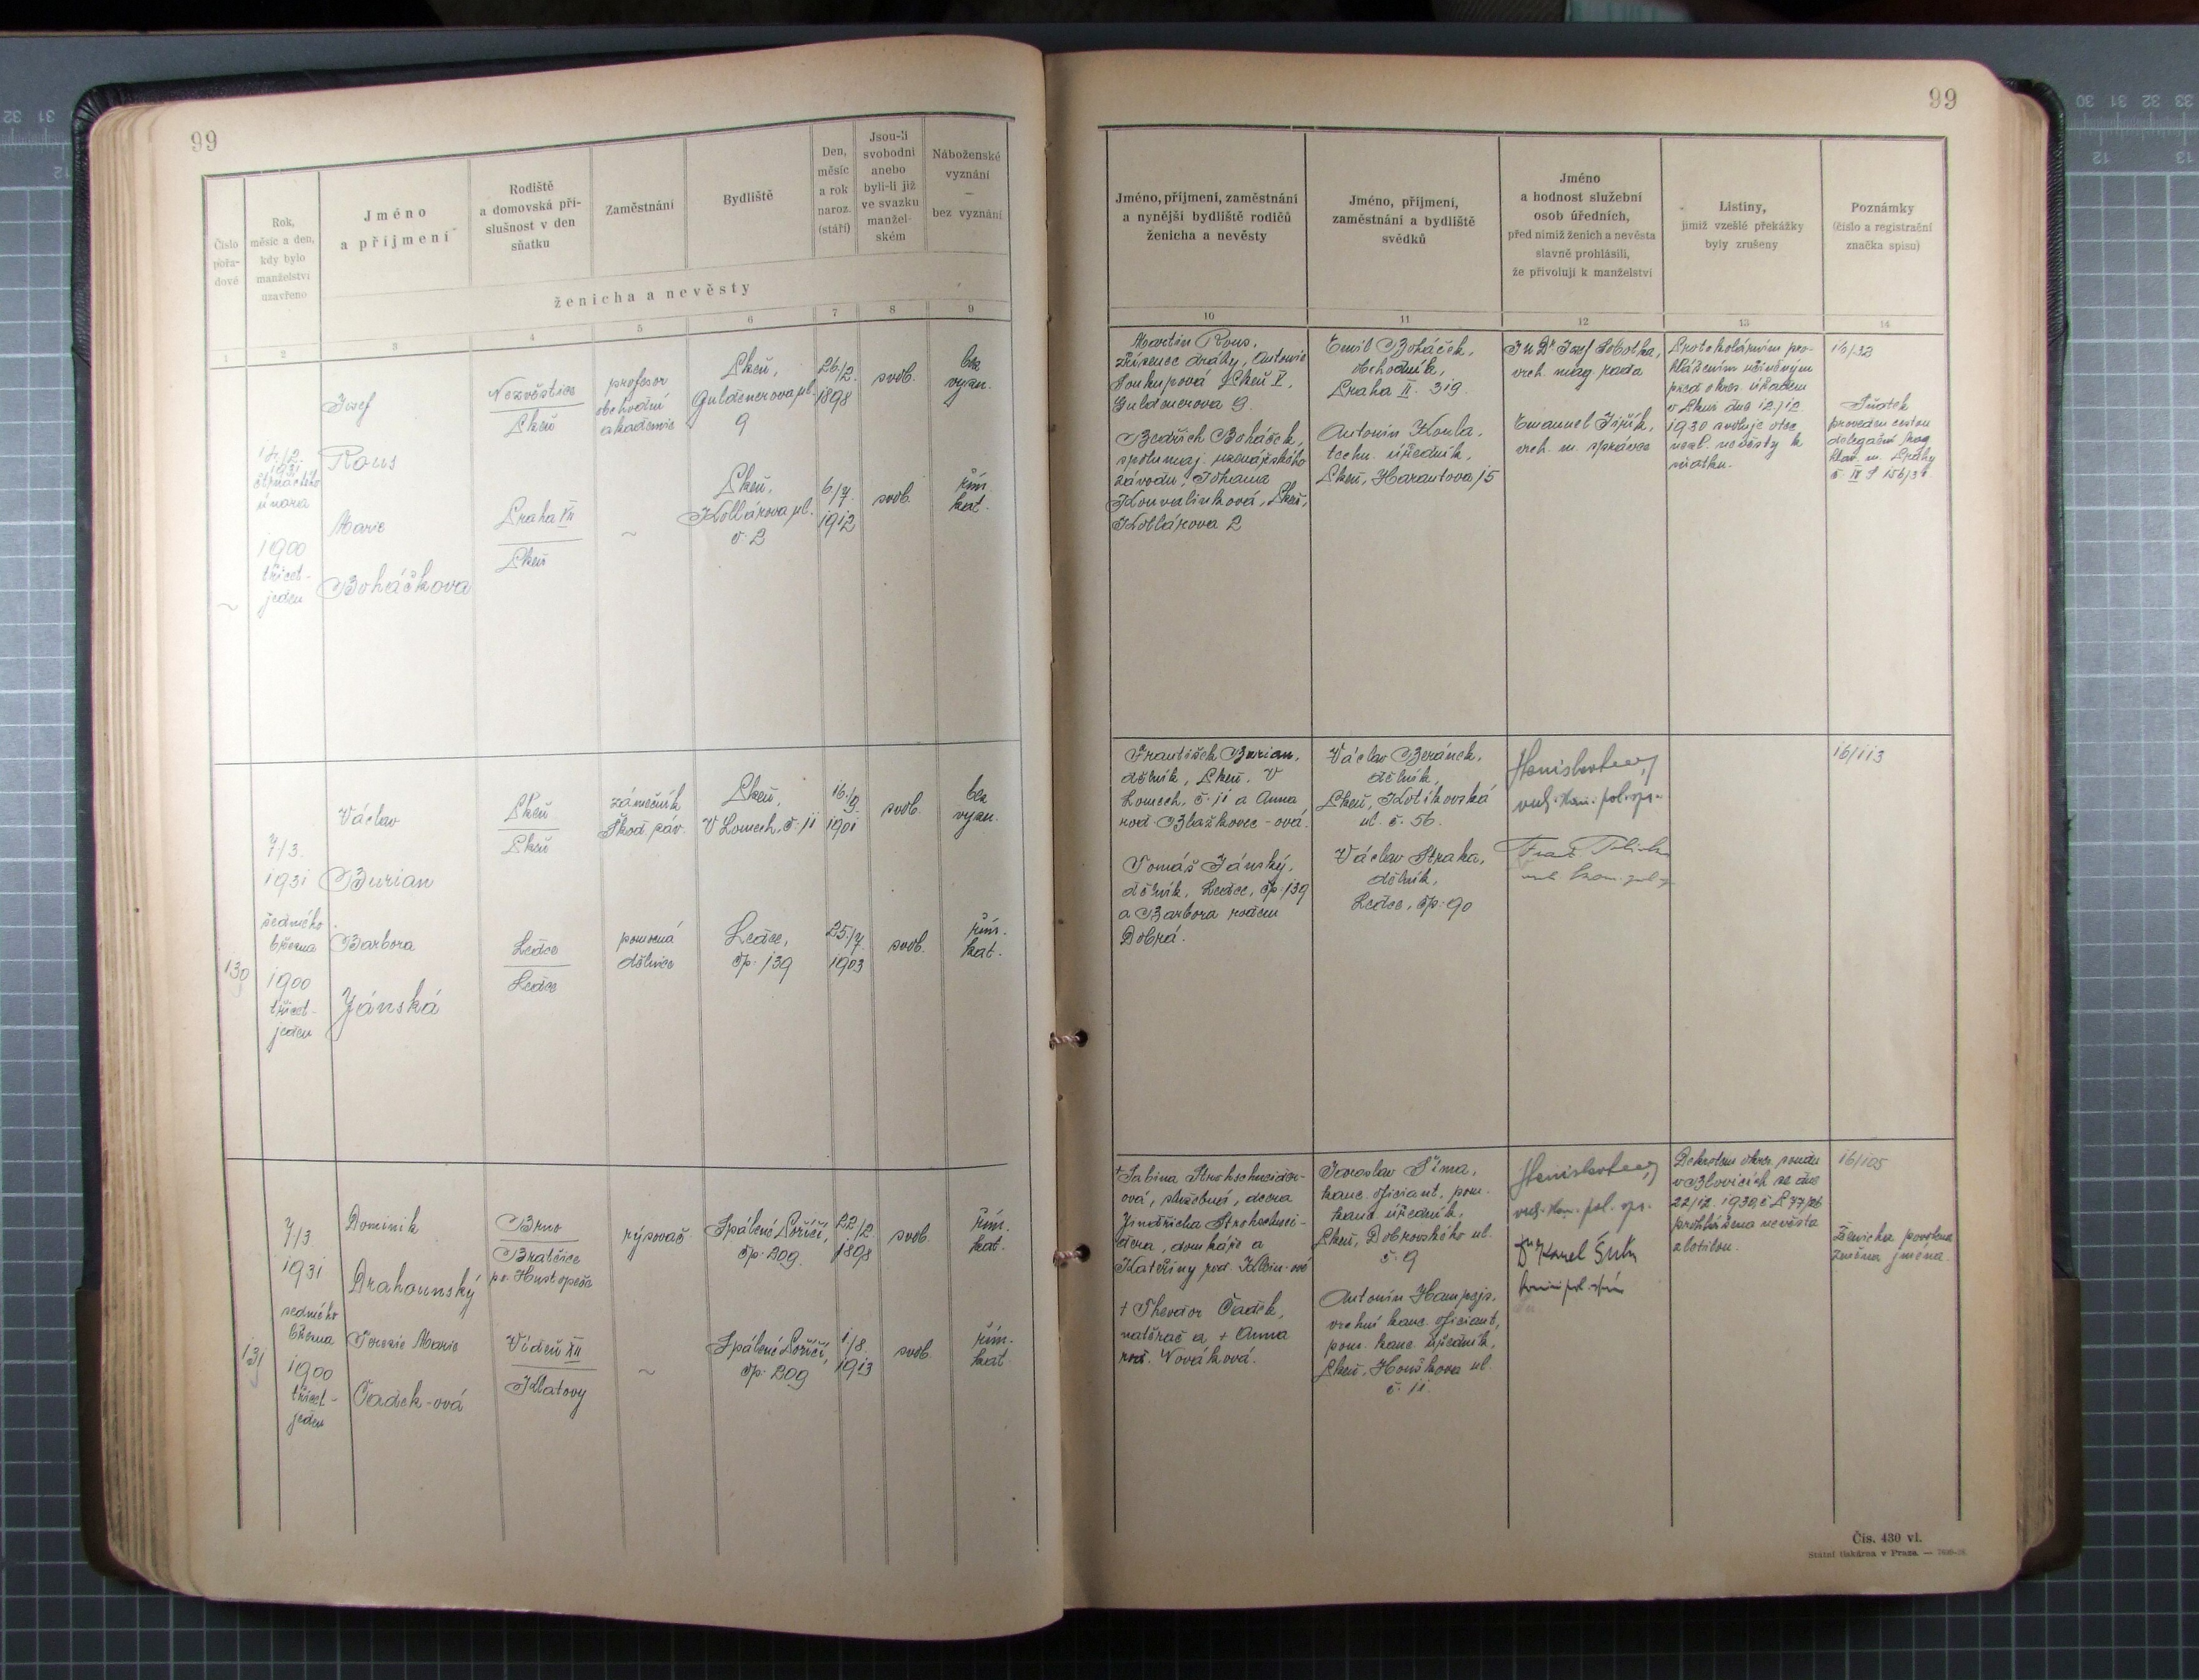 99
Číslo pořadové
Rok, měsíc a den, kdy bylo manželství uzavřeno
Jméno a příjmení
Rodiště a domovská příslušnost v den sňatku
Zaměstnání
Bydliště
Den, měsíc a rok naroz. (stáří)
Jsou-li svobodni anebo byli-li již ve svazku manželském
Náboženské vyznání — bez vyznání
ženicha a nevěsty
1 2 3 4 5 6 7 8 9
1931
čtrnáctého
února
1900
třicet-
jeden
Josef
Rous
Marie
Boháčkova
Nezvěstice
Plzeň
Praha VII
Plzeň
profesor
obchodní
akademie
~
Plzeň,
Guldenerova ul.
9
Plzeň,
Kollárova ul.
č. 2
26./2.
1898
6/7.
1912
svob.
svob.
bez
vyzn.
řím.
kat.
~
130
7/3.
1931
sedmého
března
1900
třicet-
jeden
Václav
Burian
Barbora
Jánská
Plzeň
Plzeň
Ledce
Ledce
zámečník
Škod. záv.
pomocná
dělnice
Plzeň,
V Lomech, č. 11
Ledce,
čp. 139
16./9.
1901
25./7.
1903
svob.
svob.
bez
vyzn.
řím.
kat.
131
7/3
1931
sedmého
března
1900
třicet-
jeden
Dominik
Drahounský
Terezie Marie
Čadek-ová
Brno
Bratčice
po. Hustopeče
Vídeň XII
Klatovy
rýsovač
~
Spálené Poříčí,
čp. 209.
Spálené Poříčí,
čp. 209
22./2.
1898
1./8.
1913
svob.
svob.
řím.
kat.
řím.
kat.
99
Jméno, příjmení, zaměstnání
a nynější bydliště rodičů
ženicha a nevěsty
Jméno, příjmení,
zaměstnání a bydliště
svědků
Jméno
a hodnost služební
osob úředních,
před nimiž ženich a nevěsta
slavně prohlásili,
že přivolují k manželství
Listiny,
jimiž vzešlé překážky
byly zrušeny
Poznámky
(číslo a registrační
značka spisu)
10 11 12 13 14
Martin Rous,
zřízenec dráhy, Antonie
Soukupová Plzeň V,
Guldenerova 9.
Bedřich Boháček,
spolumaj. uzenářského
závodu, Johana
Konvalinková, Plzeň,
Kollárova 2
Emil Boháček,
obchodník,
Praha II. 319.
Antonín Koula,
techn. úředník,
Plzeň, Harantova 15
JUDr Josef Sobotka,
vrch. mag. rada
Emanuel Jiřík,
vrch. m. správce
Protokolárním pro-
hlášením učiněným
před okres. úřadem
v Plzni dne 12./12.
1930 svoluje otec
nezl. nevěsty k
sňatku.
16/32
Sňatek
proveden cestou
delegační
hlav. m. Prahy
František Burian,
dělník, Plzeň, V
Lomech, č. 11 a Anna
rod. Blažkovec-ová.
Tomáš Jánský,
dělník, Ledce, čp. 139
a Barbora rodem
Dobrá.
Václav Beránek,
dělník,
Plzeň, Kotíkovská
ul. č. 56.
Václav Straka,
dělník,
Ledce, čp. 90
16/113
† Sabina Strohschneider-
ová, služebná, dcera
Jindřicha Strohschnei-
dera, domkáře a
Kateřiny rod. Klein-ové
† Theodor Čadek,
natěrač a † Anna
roz. Nováková.
Jaroslav Šíma,
kanc. oficiant, pom.
kanc. úředník,
Plzeň, Dobrovského ul.
č. 9
Antonín Hampejs,
vrchní kanc. oficiant,
pom. kanc. úředník,
Plzeň, Houškova ul.
č. 11.
Dr Karel
Dekretem okres. soudu
v Blovicích ze dne
22/12. 1930,
prohlášena nevěsta
zletilou.
16/105
Ženichu povolena
změna jména.
Čís. 430 vl.
Státní tiskárna v Praze.